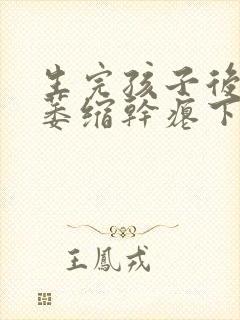 生完孩子後
萎缩幹瘪下
王鳳戎